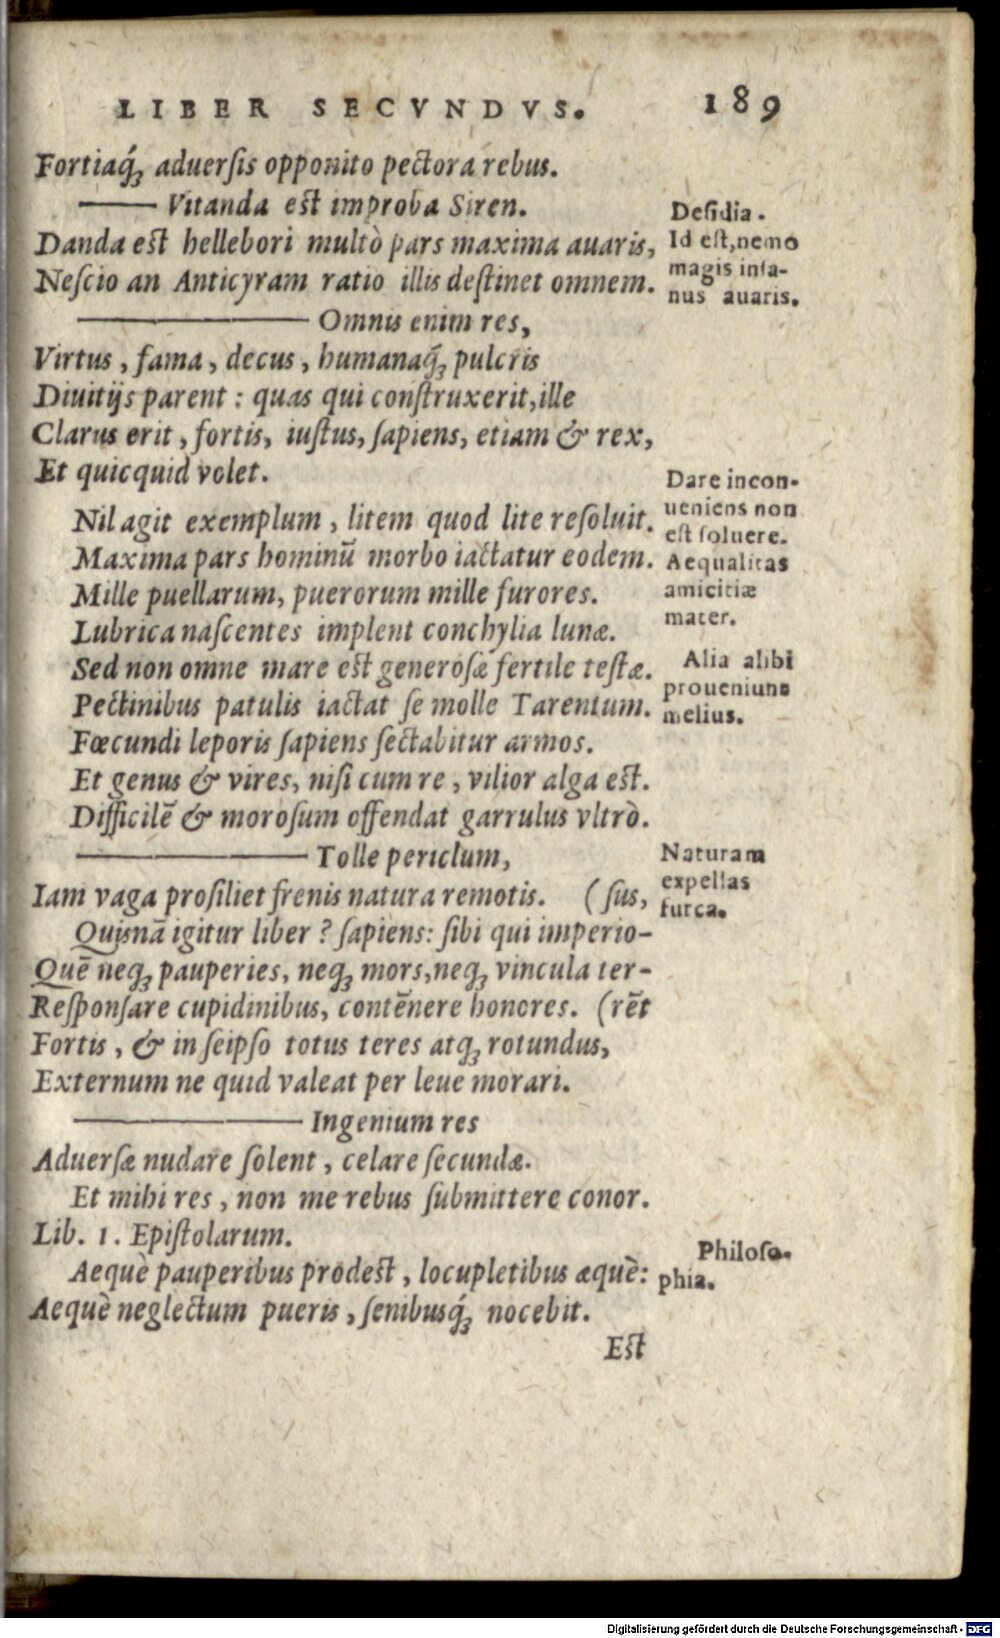 LIBER SECVNDVS. 189
Fortiaq́ꝫ aduerſis opponito pectora rebus.
——— Vitanda eſt improba Siren.
Danda eſt hellebori multò pars maxima auaris,
Neſcio an Anticyram ratio illis deſtinet omnem.
——— Omnis enim res,
Virtus, fama, decus, humanaq́ꝫ pulcris
Diuitijs parent: quas qui conſtruxerit, ille
Clarus erit, fortis, iuſtus, ſapiens, etiam & rex,
Et quicquid volet.
Nil agit exemplum, litem quod lite reſoluit.
Maxima pars hominũ morbo iactatur eodem.
Mille puellarum, puerorum mille furores.
Lubrica naſcentes implent conchylia lunæ.
Sed non omne mare eſt generoſæ fertile teſtæ.
Pectinibus patulis iactat ſe molle Tarentum.
Fœcundi leporis ſapiens ſectabitur armos.
Et genus & vires, niſi cum re, vilior alga eſt.
Difficilẽ & moroſum offendat garrulus vltrò.
——— Tolle periclum,
Iam vaga proſiliet frenis natura remotis. (ſus,
Quisnã igitur liber? ſapiens: ſibi qui imperio-
Quẽ neqꝫ pauperies, neqꝫ mors, neqꝫ vincula ter-
Reſponſare cupidinibus, contẽnere honores. (rẽt
Fortis, & in ſeipſo totus teres atqꝫ rotundus,
Externum ne quid valeat per leue morari.
——— Ingenium res
Aduerſæ nudare ſolent, celare ſecundæ.
Et mihi res, non me rebus ſubmittere conor.
Lib. 1. Epiſtolarum.
Aequè pauperibus prodeſt, locupletibus æquè:
Aequè neglectum pueris, ſenibusq́ꝫ nocebit.
Eſt
Deſidia.
Id eſt, nemo
magis inſa-
nus auaris.
Dare incon-
ueniens non
eſt ſoluere.
Aequalitas
amicitiæ
mater.
Alia alibi
proueniunt
melius.
Naturam
expellas
furca.
Philoſo-
phia.
Digitalisierung gefördert durch die Deutsche Forschungsgemeinschaft - DFG